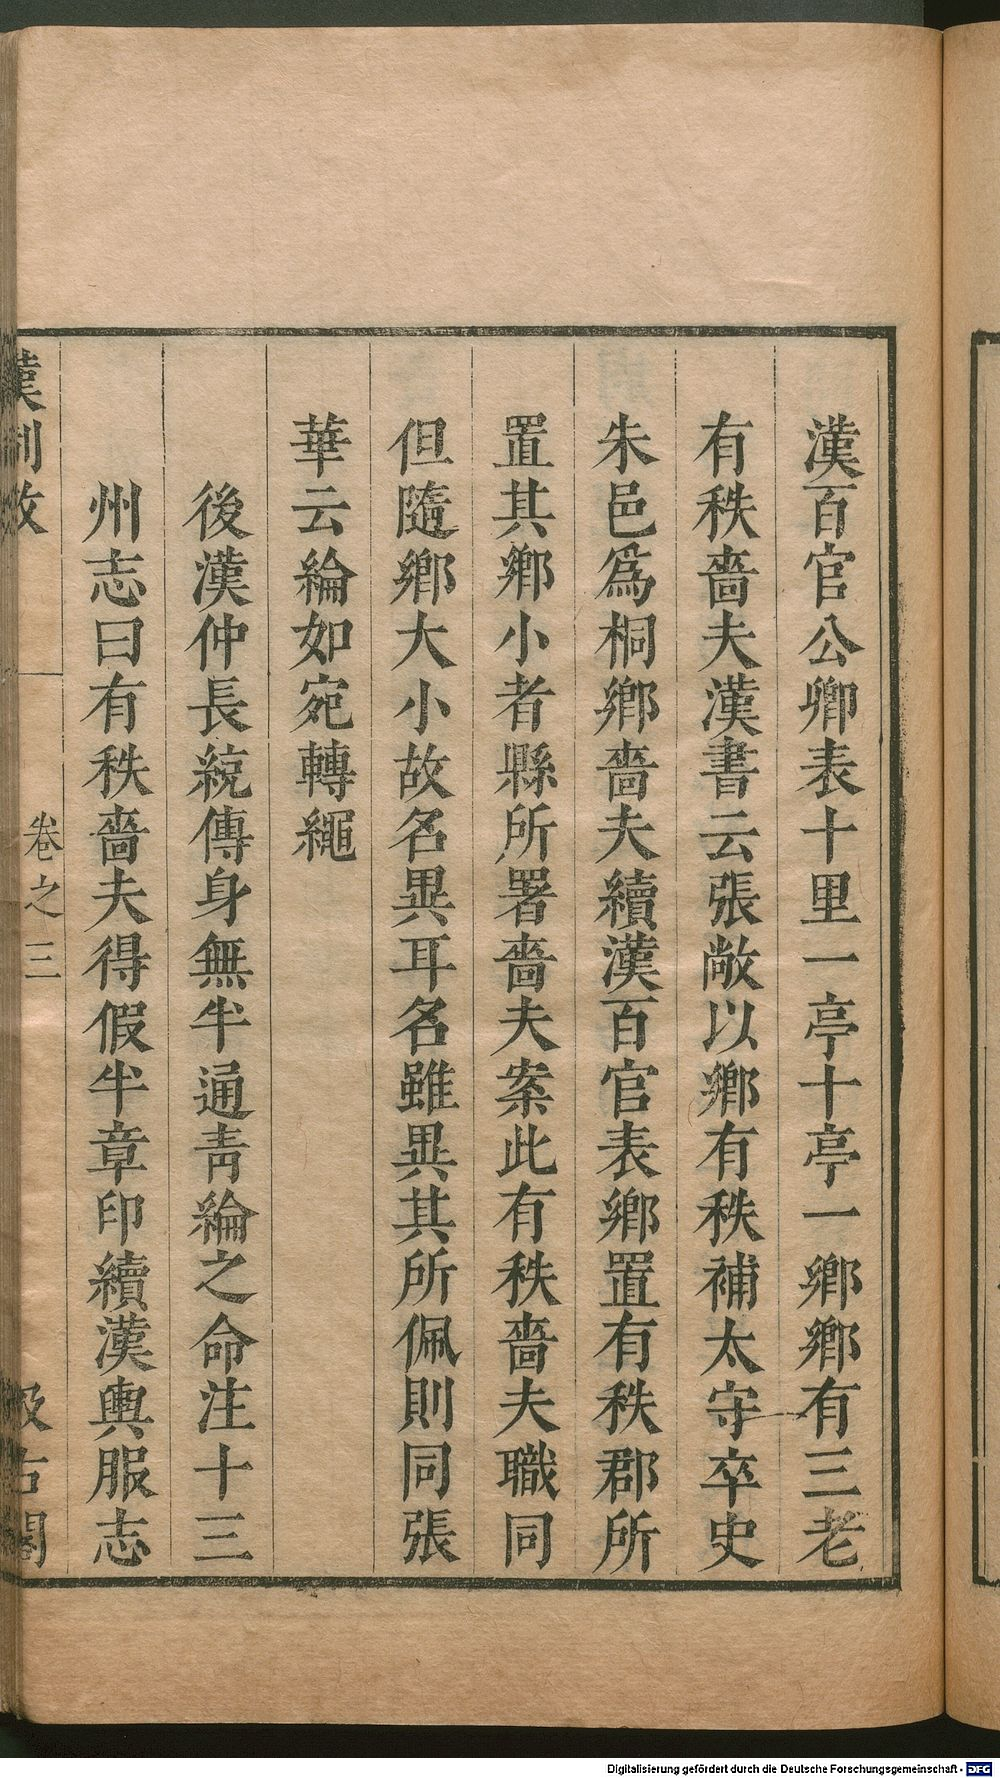 漢百官公卿表十里一亭十亭一鄉鄉有三老
有秩嗇夫漢書云張敞以鄉有秩補太守卒史
朱邑爲桐鄉嗇夫續漢百官表鄉置有秩郡所
置其鄉小者縣所署嗇夫案此有秩嗇夫職同
但隨鄉大小故名異耳名雖異其所佩則同張
華云綸如宛轉繩
後漢仲長統傳身無半通青綸之命注十三
州志曰有秩嗇夫得假半章印續漢輿服志
漢制攷 卷之三 汲古閣
Digitalisierung gefördert durch die Deutsche Forschungsgemeinschaft - DFG